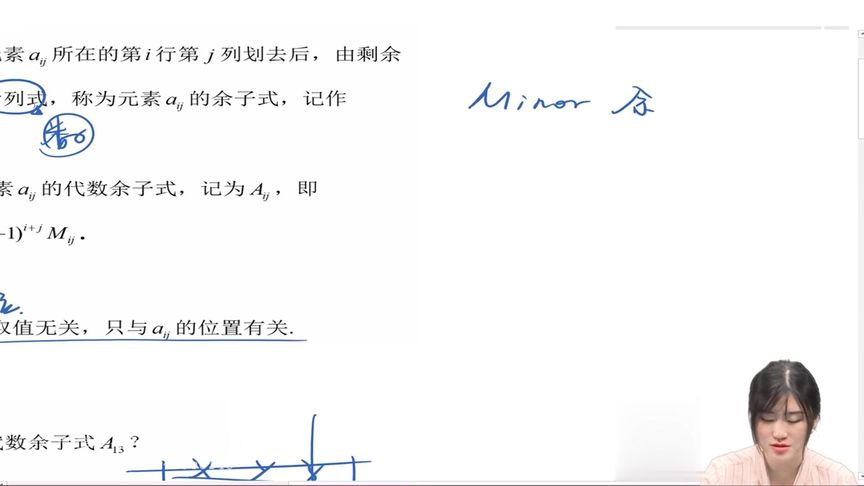 素 aᵢⱼ 所在的第 i 行第 j 列划去后，由剩余
列式，称为元素 aᵢⱼ 的余子式，记作
Minor 余
素 aᵢⱼ 的代数余子式，记为 Aᵢⱼ，即
-1)ⁱ⁺ʲ Mᵢⱼ．
取值无关，只与 aᵢⱼ 的位置有关.
代数余子式 A₁₃？